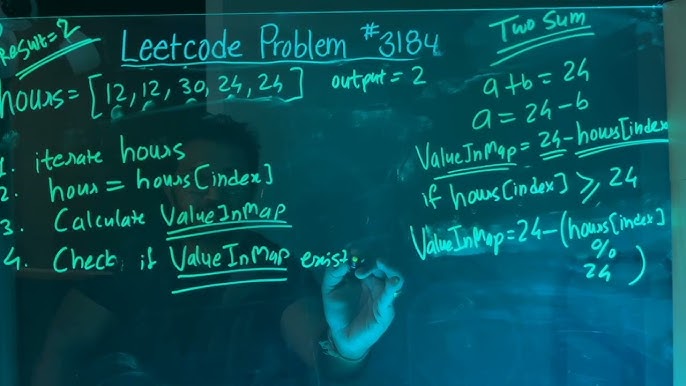 Result = 2
Leetcode Problem #3184
Two Sum
hours = [12, 12, 30, 24, 24] output = 2
1. iterate hours
2. hour = hours[index]
3. Calculate ValueInMap
4. Check if ValueInMap exist
a+b = 24
a = 24-b
ValueInMap = 24-hours[index
if hours[index] ≥ 24
ValueInMap = 24-(hours[index]
%
24 )